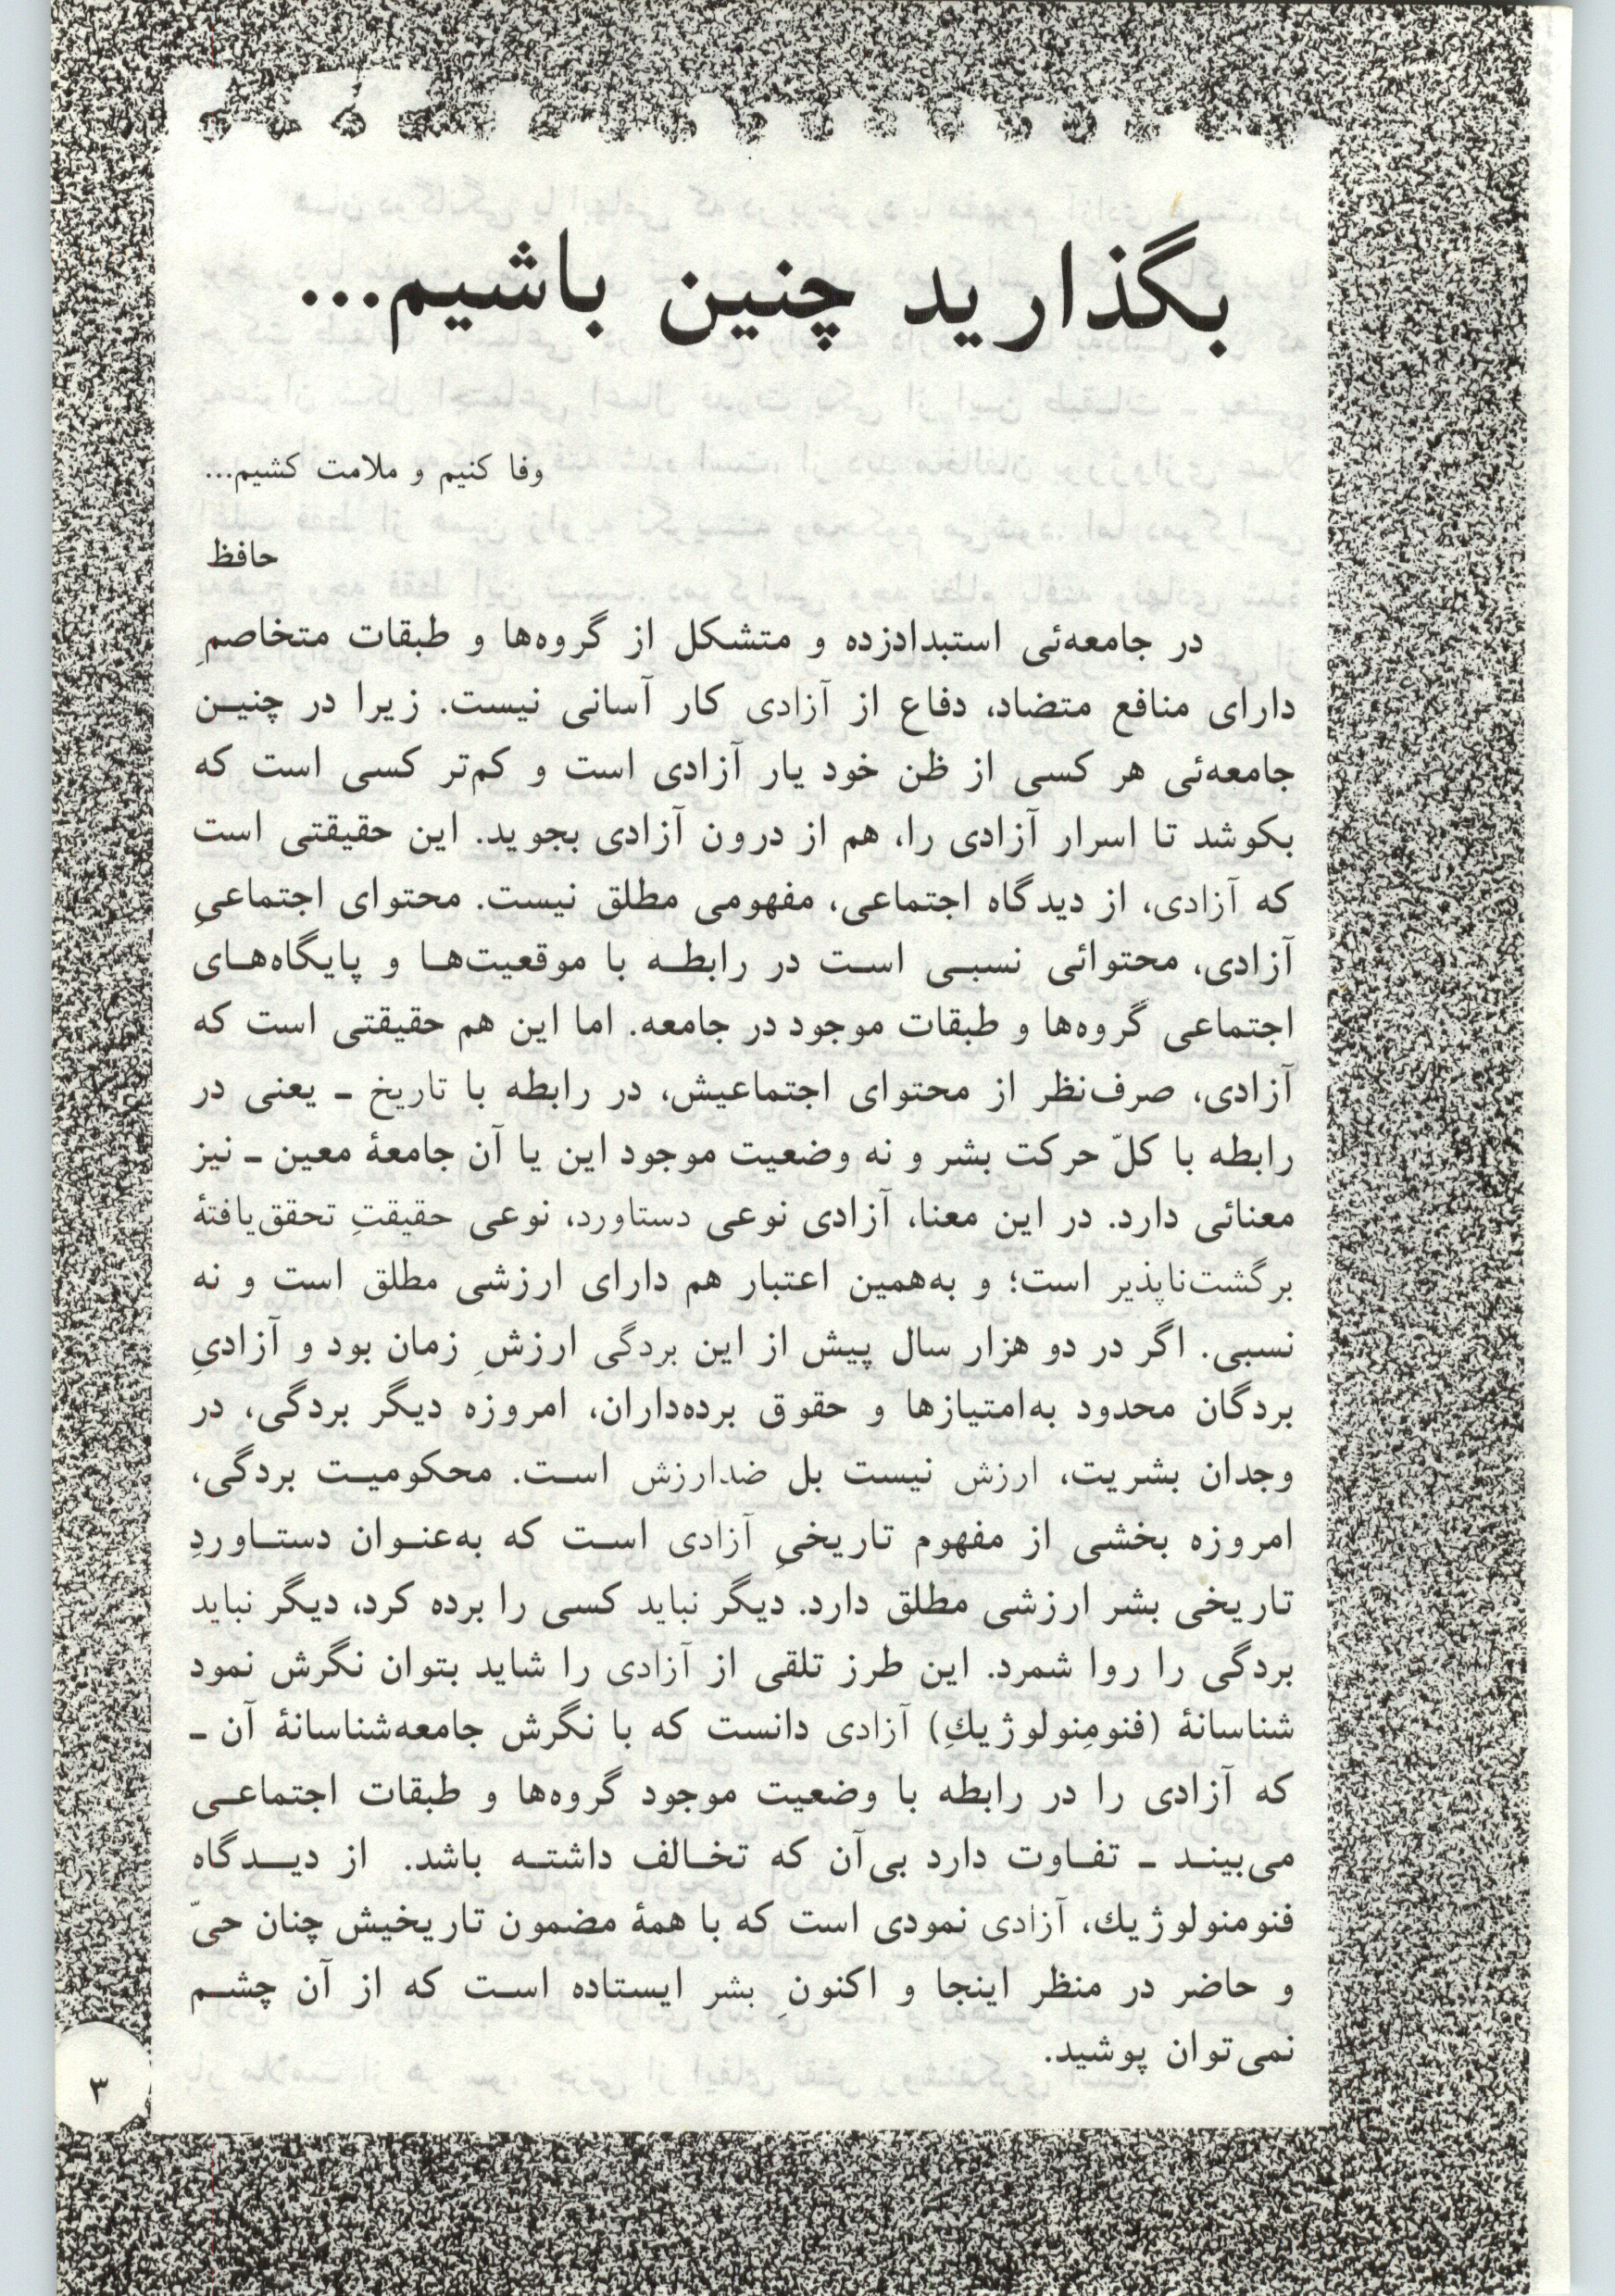 بگذارید چنین باشیم...
وفا کنیم و ملامت کشیم...
حافظ
در جامعه‌ئی استبدادزده و متشکل از گروه‌ها و طبقات متخاصمِ
دارای منافع متضاد، دفاع از آزادی کار آسانی نیست. زیرا در چنیـن
جامعه‌ئی هر کسی از ظن خود یار آزادی است و کم‌تر کسی است که
بکوشد تا اسرار آزادی را، هم از درون آزادی بجوید. این حقیقتی است
که آزادی، از دیدگاه اجتماعی، مفهومی مطلق نیست. محتوای اجتماعیِ
آزادی، محتوائی نسبـی اسـت در رابطـه با موقعیت‌هـا و پایگاه‌هـای
اجتماعی گروه‌ها و طبقات موجود در جامعه. اما این هم حقیقتی است که
آزادی، صرف‌نظر از محتوای اجتماعیش، در رابطه با تاریخ ـ یعنی در
رابطه با کلّ حرکت بشر و نه وضعیت موجود این یا آن جامعهٔ معین ـ نیز
معنائی دارد. در این معنا، آزادی نوعی دستاورد، نوعی حقیقتِ تحقق‌یافتهٔ
برگشت‌ناپذیر است؛ و به‌همین اعتبار هم دارای ارزشی مطلق است و نه
نسبی. اگر در دو هزار سال پیش از این بردگی ارزشِ زمان بود و آزادیِ
بردگان محدود به‌امتیازها و حقوق برده‌داران، امروزه دیگر بردگی، در
وجدان بشریت، ارزش نیست بل ضدارزش اسـت. محکومیـت بردگی،
امروزه بخشی از مفهوم تاریخیِ آزادی اسـت که به‌عنـوان دستـاوردِ
تاریخی بشر ارزشی مطلق دارد. دیگر نباید کسی را برده کرد، دیگر نباید
بردگی را روا شمرد. این طرز تلقی از آزادی را شاید بتوان نگرش نمود
شناسانهٔ (فنومِنولوژیكِ) آزادی دانست که با نگرش جامعه‌شناسانهٔ آن ـ
که آزادی را در رابطه با وضعیت موجود گروه‌ها و طبقات اجتماعـی
می‌بینـد ـ تفـاوت دارد بی‌آن که تخـالف داشتـه باشد. از دیـدگاه
فنومنولوژیك، آزادی نمودی است که با همهٔ مضمون تاریخیش چنان حیّ
و حاضر در منظر اینجا و اکنونِ بشر ایستاده اسـت که از آن چشـم
نمی‌توان پوشید.
۳